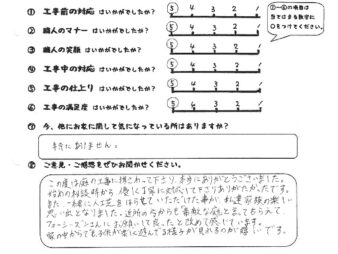 ① 工事前の対応 はいかがでしたか? 5 4 3 2 1
② 職人のマナー はいかがでしたか? 5 4 3 2 1
③ 職人の笑顔 はいかがでしたか? 5 4 3 2 1
④ 工事中の対応 はいかがでしたか? 5 4 3 2 1
⑤ 工事の仕上り はいかがでしたか? 5 4 3 2 1
⑥ 工事の満足度 はいかがでしたか? 5 4 3 2 1
①~⑥の項目は
当てはまる数字に
○をつけてください。
⑦ 今、他にお宅に関して気になっている所はありますか?
特にありません。
⑧ ご意見・ご感想をぜひお聞かせください。
この度は庭の工事に携さわって下さり、本当にありがとうございました。
初めの相談時から 優しく丁寧に対応して下さりありがたかったです。
また、一緒に人工芝をはらせていただけた事が、私達家族の楽しい
思い出となりました。近所の方からも素敵な庭と言ってもらえて、
フォーシーズンさんにお願いして良かったと改めて感じています。
家の中からでも子供が楽しく遊んでる様子が見れるのが嬉しいです。